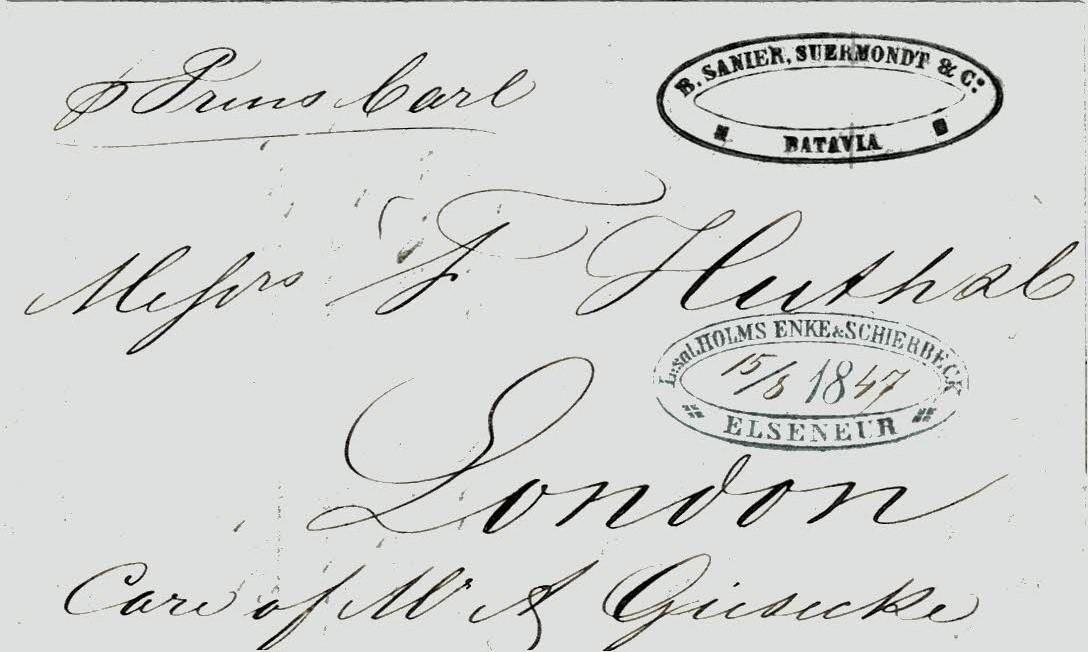 p Prins Carl
B. SANIER, SUERMONDT & Co:
BATAVIA
Messrs F Huth & C
L. sal. HOLMS ENKE & SCHIERBECK
15/8 1847
ELSENEUR
London
Care of Mr A Giesecke